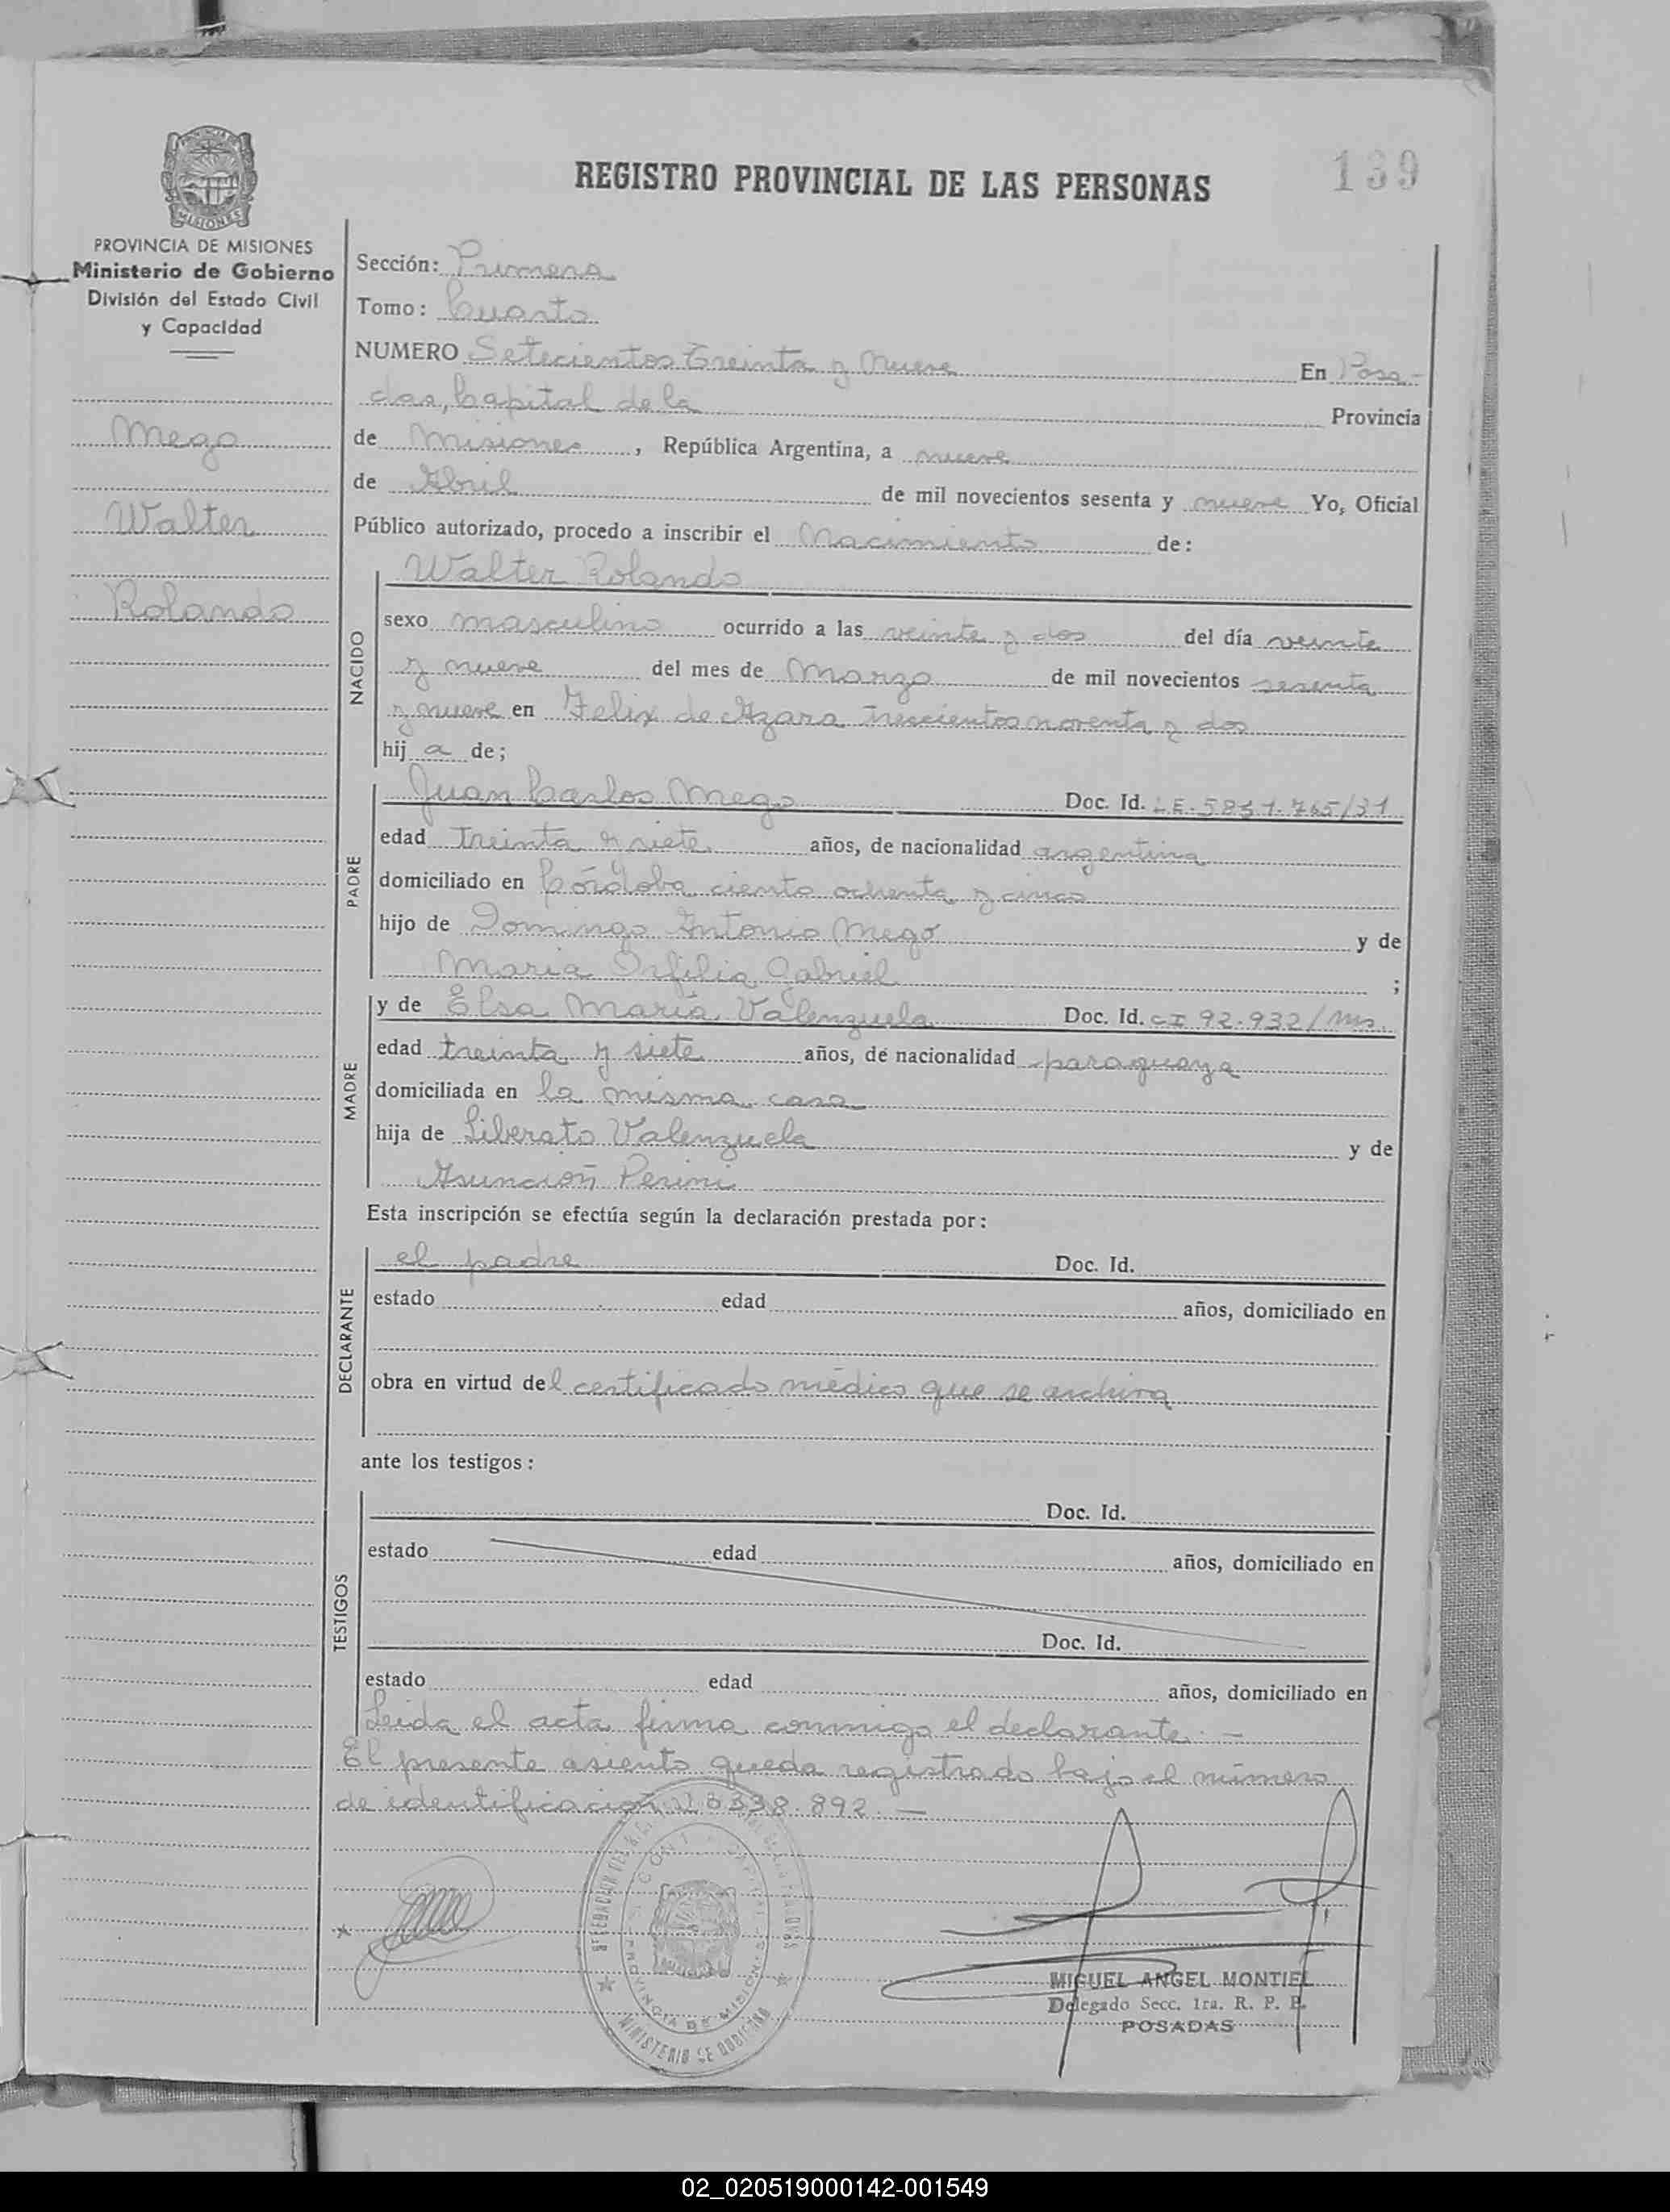 REGISTRO PROVINCIAL DE LAS PERSONAS
139
MISIONES
PROVINCIA DE MISIONES
Ministerio de Gobierno
División del Estado Civil
y Capacidad
Mego
Walter
Rolando
Sección: Primera
Tomo: Cuarto
NUMERO Setecientos Treinta y Nueve En Posa-
das, Capital de la Provincia
de Misiones, República Argentina, a nueve
de Abril de mil novecientos sesenta y nueve Yo, Oficial
Público autorizado, procedo a inscribir el Nacimiento de:
NACIDO
Walter Rolando
sexo masculino ocurrido a las veinte y dos del día veinte
y nueve del mes de Marzo de mil novecientos sesenta
y nueve en Felix de Azara trescientos noventa y dos
hij a de;
PADRE
Juan Carlos Mego Doc. Id. L.E. 5851.765/31
edad treinta y siete años, de nacionalidad argentina
domiciliado en Córdoba ciento ochenta y cinco
hijo de Domingo Antonio Mego y de
Maria Orfilia Gabriel ;
MADRE
y de Elsa María Valenzuela Doc. Id. CI 92.932/Ms.
edad treinta y siete años, de nacionalidad paraguaya
domiciliada en la misma casa
hija de Liberato Valenzuela y de
Asunción Perini
Esta inscripción se efectúa según la declaración prestada por:
DECLARANTE
el padre Doc. Id.
estado edad años, domiciliado en
obra en virtud del certificado médico que se archiva
ante los testigos:
TESTIGOS
Doc. Id.
estado edad años, domiciliado en
Doc. Id.
estado edad años, domiciliado en
Leida el acta firma conmigo el declarante. -
El presente asiento queda registrado bajo el número
de identificación 20338.892. -
PROVINCIA DE MISIONES
MINISTERIO DE GOBIERNO
MIGUEL ANGEL MONTIEL
Delegado Secc. 1ra. R. P. P.
POSADAS
02_020519000142-001549